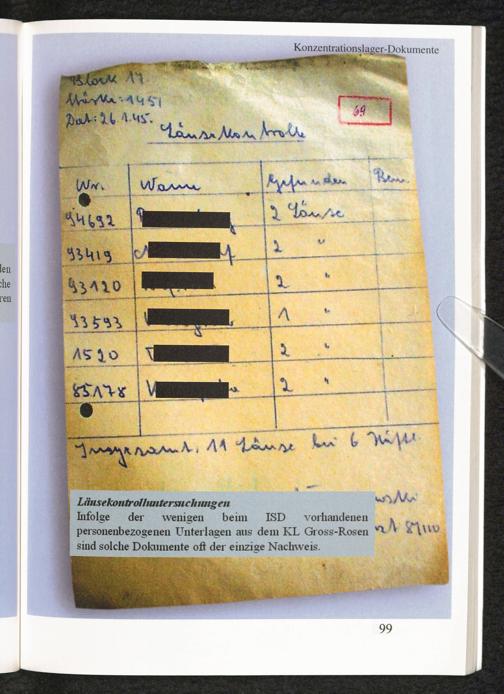 Konzentrationslager-Dokumente
Block 17
Stärke: 1451
Dat: 26.1.45.
69
Läusekontrolle
Nr. Name Gefunden Bem.
94692 2 Läuse
93419 2 "
93120 2 "
93593 1 "
1520 2 "
85178 2 "
Insgesamt. 11 Läuse bei 6 Häftl.
Läusekontrolluntersuchungen
Infolge der wenigen beim ISD vorhandenen
personenbezogenen Unterlagen aus dem KL Gross-Rosen
sind solche Dokumente oft der einzige Nachweis.
99